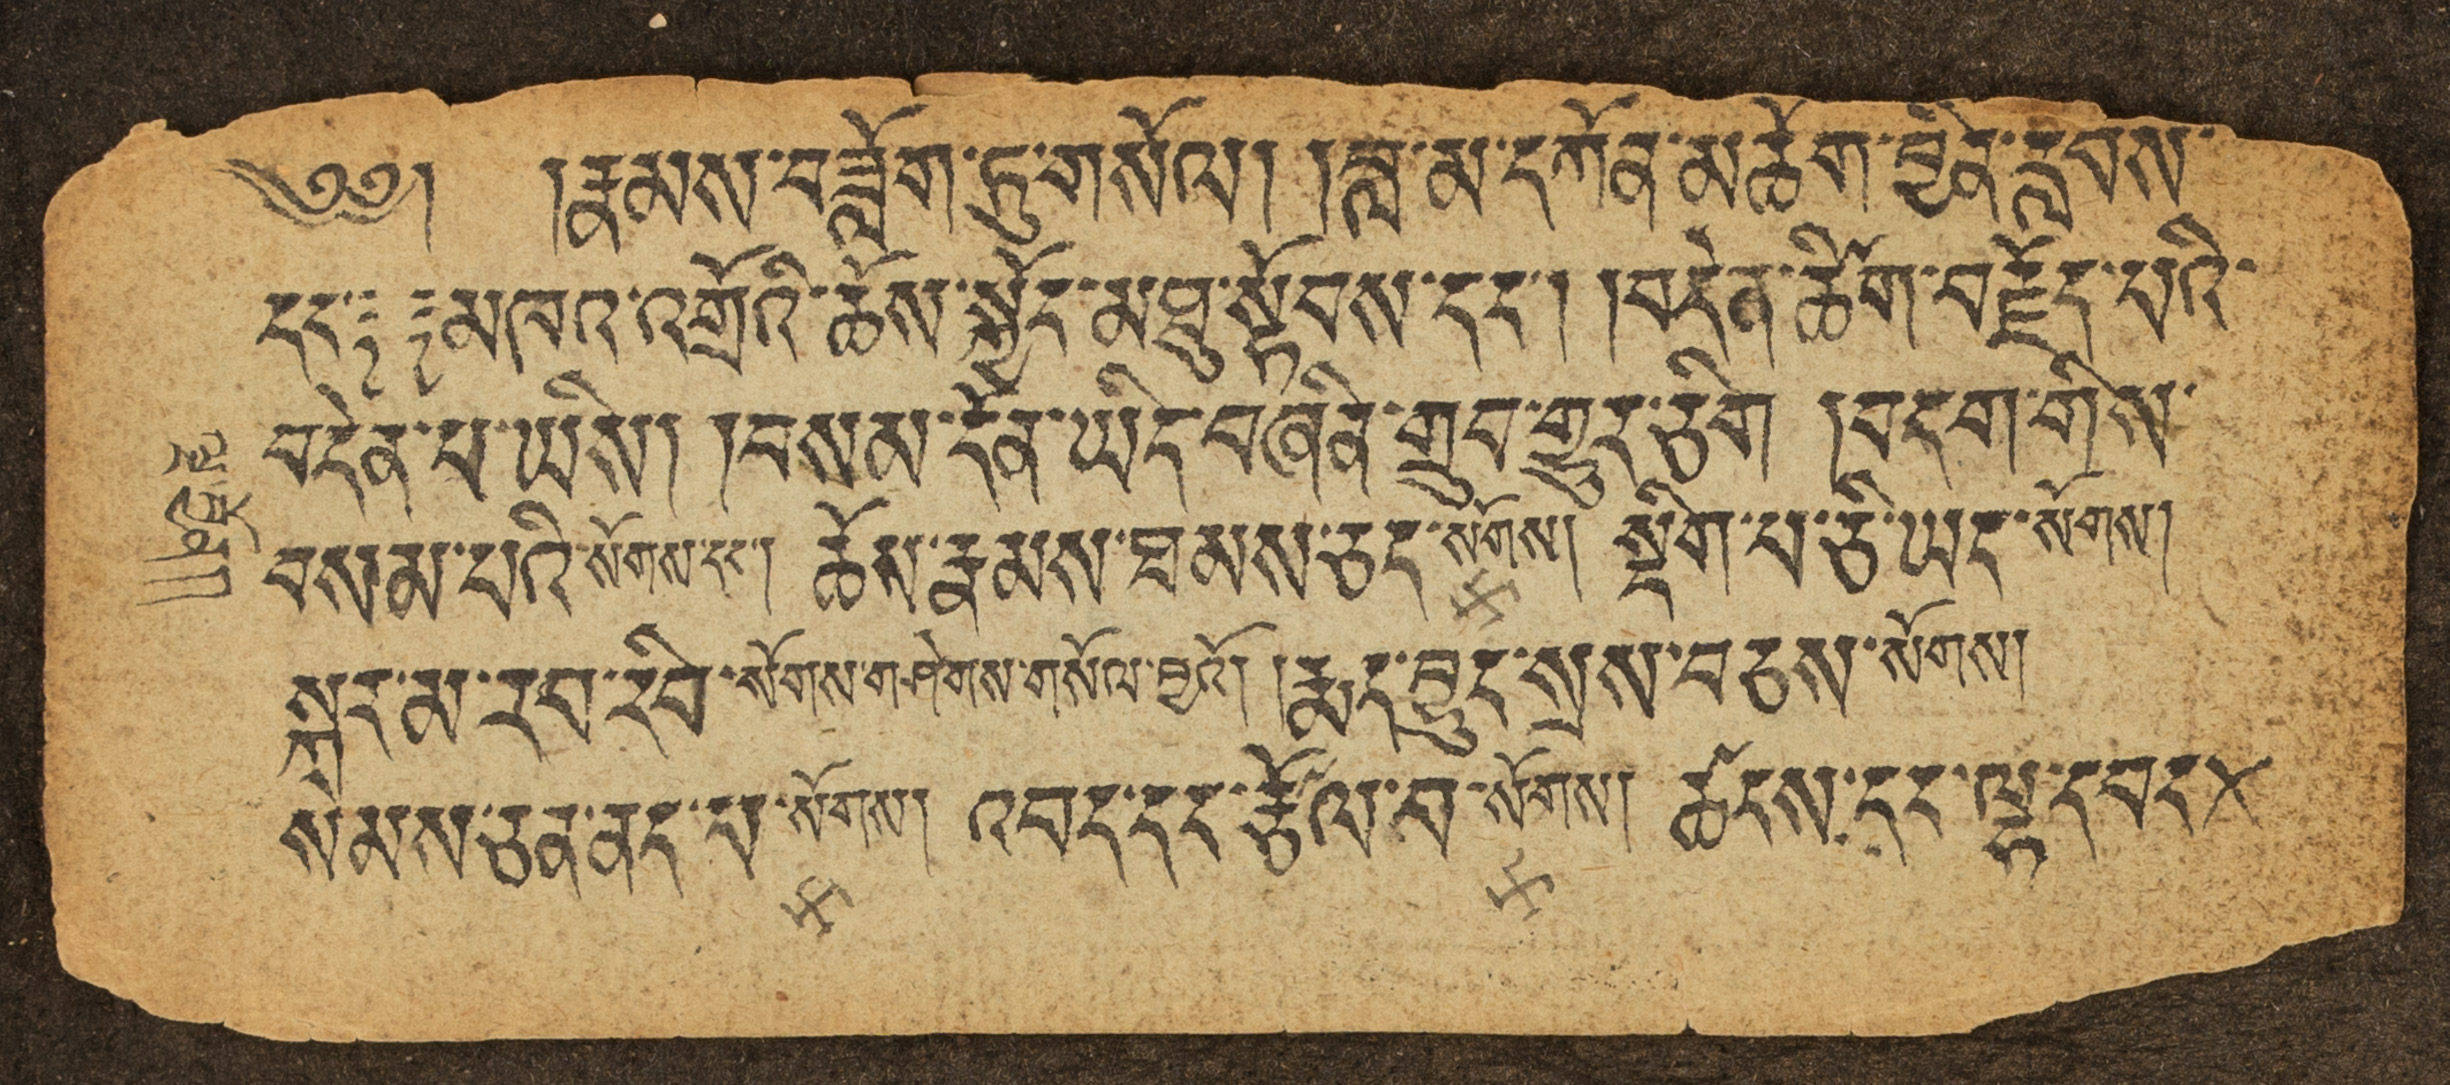 ༄༅། །རྣམས་བཟློག་ཏུ་གསོལ། །བླ་མ་དཀོན་མཆོག་བྱིན་རླབས་
དང་༔ ༔མཁའ་འགྲོའི་ཆོས་སྐྱོང་མཐུ་སྟོབས་དང་། །བདེན་ཚིག་བརྗོད་པའི་
བདེན་པ་ཡིས། །བསམ་དོན་ཡིད་བཞིན་གྲུབ་གྱུར་ཅིག །བདག་གིས་
བསམ་པའི་སོགས་དང་། ཆོས་རྣམས་ཐམས་ཅད་སོགས། སྡིག་པ་ཅི་ཡང་སོགས།
སྐར་མ་རབ་རིབ་སོགས་གཤེགས་གསོལ་བྱའོ། །རྐང་བྱུང་སྲས་བཅས་སོགས།
སེམས་ཅན་ནད་པ་སོགས། འབད་དང་རྩོལ་བ་སོགས། ཚངས་དང་ལྷ་དབང༌×